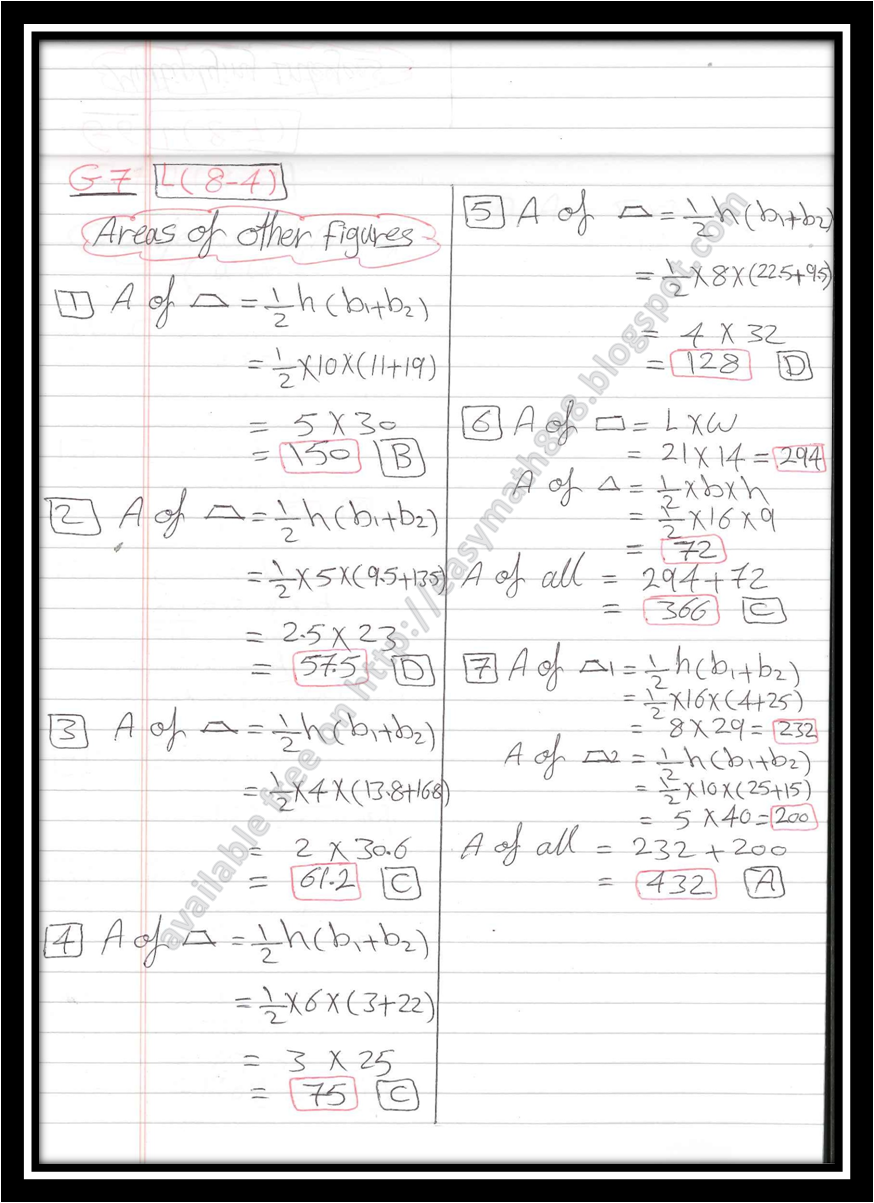 G7 L(8-4)
Areas of other figures
1 A of ⏢ = 1/2 h(b₁+b₂)
= 1/2 X10X(11+19)
= 5 X 30
= 150 B
2 A of ⏢ = 1/2 h(b₁+b₂)
= 1/2 X 5 X (9.5+13.5)
= 2.5 X 23
= 57.5 D
3 A of ⏢ = 1/2 h(b₁+b₂)
= 1/2 X 4 X (13.8+16.8)
= 2 X 30.6
= 61.2 C
4 A of ⏢ = 1/2 h(b₁+b₂)
= 1/2 X 6 X (3+22)
= 3 X 25
= 75 C
5 A of ⏢ = 1/2 h(b₁+b₂)
= 1/2 X 8 X (22.5+9.5)
= 4 X 32
= 128 D
6 A of ▭ = L X W
= 21 X 14 = 294
A of △ = 1/2 X b X h
= 1/2 X 16 X 9
= 72
A of all = 294 + 72
= 366 C
7 A of ⏢1 = 1/2 h(b₁+b₂)
= 1/2 X16X(4+25)
= 8 X 29 = 232
A of ⏢2 = 1/2 h(b₁+b₂)
= 1/2 X10X(25+15)
= 5 X 40 = 200
A of all = 232 + 200
= 432 A
available free on http://easymath888.blogspot.com